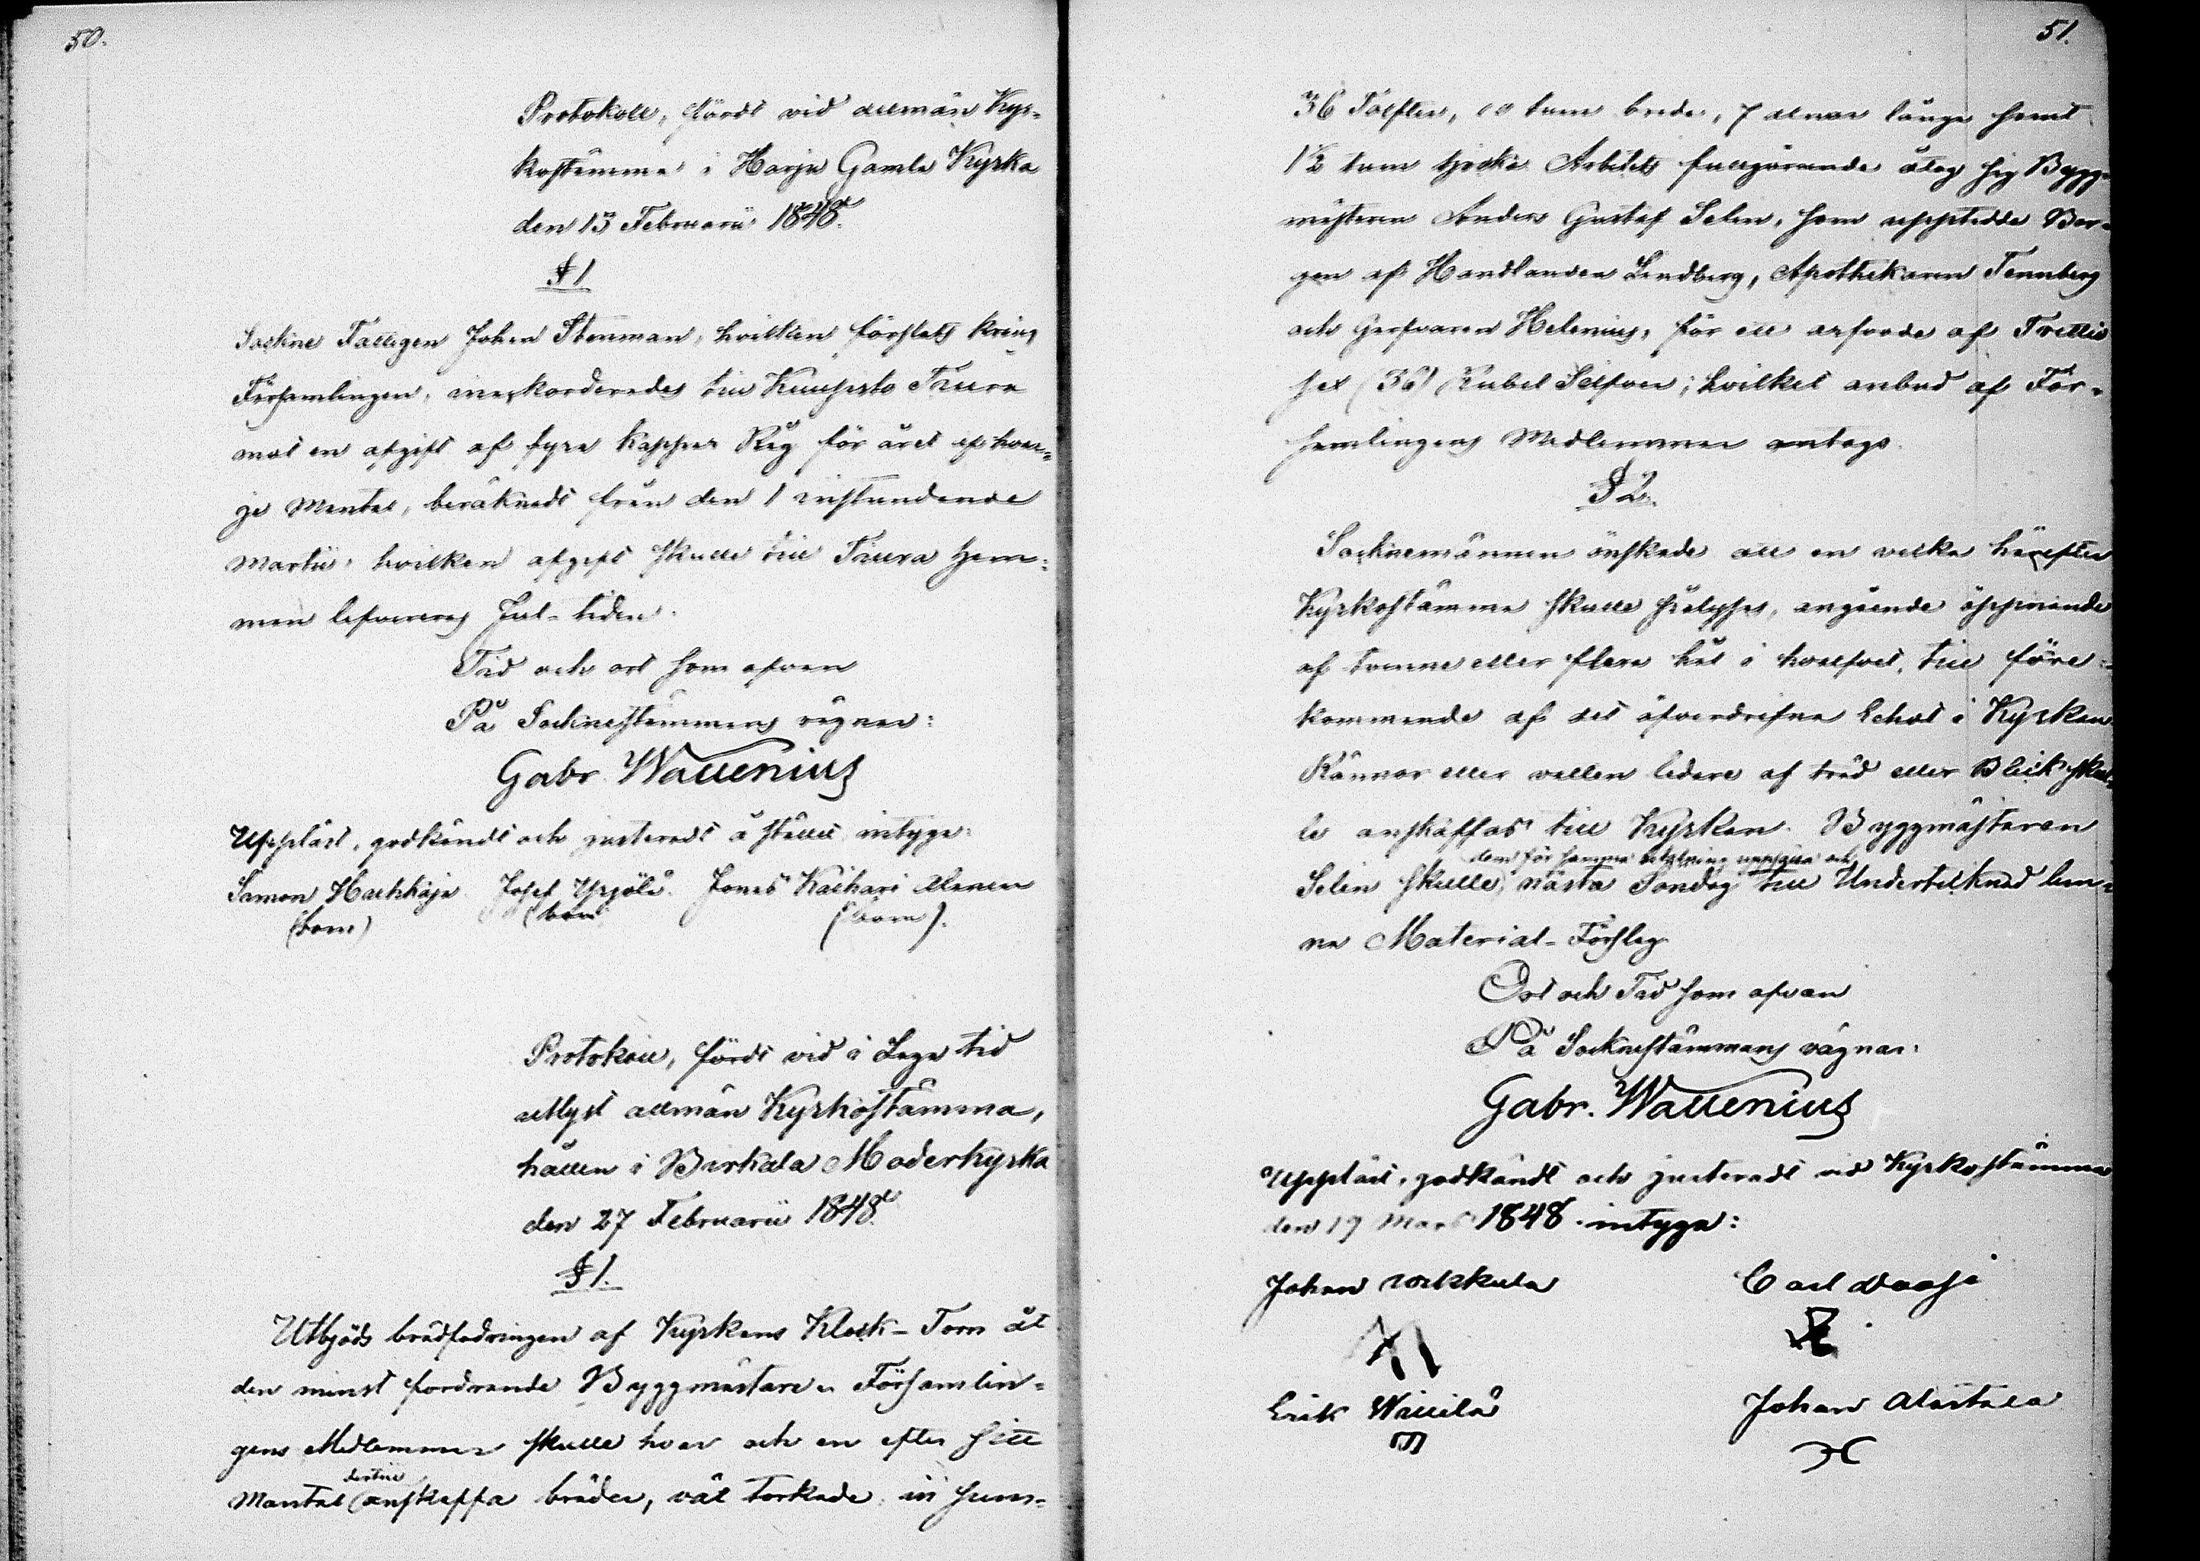 50.
Protokoll, fördt vid allmän Kyr-
kostämma i Harju Gamla Kyrka
den 13 Februarii 1848.
§ 1
Sockne Fattigen Johan Stenman, hvilken förslats kring
Församlingen, inackorderades till Kuuposto Taura
mot en afgift af fyra kappar Råg för året af hvar-
je Mantal, beräknadt från den 1 instundande
Martii, hvilken afgift skulle till Taura hem-
man lefvereras Jul-tiden.
Tid och ort som ofvan
På Sockneståmmans vägnar:
Gabr. Wallenius
Uppläst, godkändt och justeradt å stället intyga:
Samon Hackkaja Josef Yrjölä Jonas Kaihari
(bom) (bom) (bom).
Protokoll, fördt vid i Laga tid
utlyst allmän Kyrkostämma,
hållen i Birkala Moderkyrka
den 27 Februarii 1848.
§ 1.
Utbjöds brädfodringen af Kyrkans Klock-Torn åt
den minst fordrande Byggmästare. Församlin-
gens Medlemmar skulle hvar och en efter sitt
Mantal dertill anskaffa bräder, väl torkade, in sum-
51.
36 Tolfter, 10 tum breda, 7 alnar långa samt
1½ tum tjocka Arbetets fullgörande åtog sig Bygg-
mästaren Anders Gustaf Selin, som uppstedde Bor-
gen af Handlanden Lindberg, Apothekaren Tennberg
och Garfvaren Helenius, för ett arfvode af Trettio
sex (36) Rubel Silfver; hvilket anbud af För-
samlingens Medlemmar antogs.
§ 2.
Socknemännen önskade att en vecka härefter
Kyrkostämma skulle pålysas, angående öppnande
af tvenne eller flera hål i hvalfvet, till före-
kommande af det öfverdrifna Echot i Kyrkan
Rännor eller vatten ledare af träd eller Bleck skul-
le anskaffas till Kyrkan. Byggmästaren
dem för samma betalning uppsätta och
Selin skulle nästa Söndag till Undertecknad lem-
na Material-Förslag
Ort och Tid som ofvan
På Sockneståmmans vägnar:
Gabr. Wallenius
Uppläst, godkändt och justeradt vid Kyrkostämma
den 19 Mars 1848. intyga:
Johan Carl
Erik Willilä Johan Alastalo